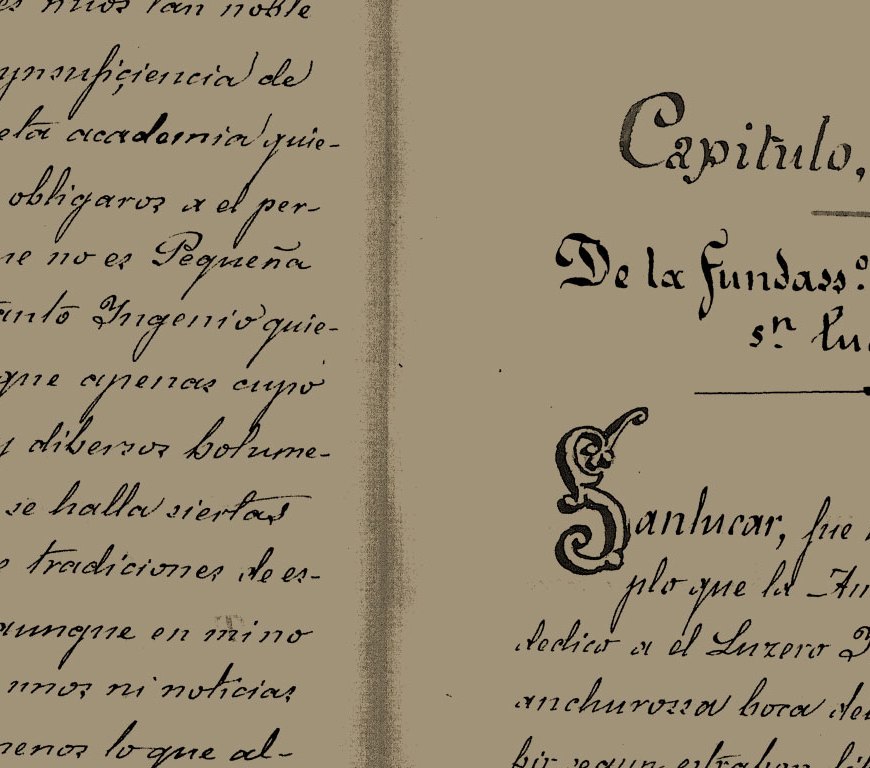 es mios tan noble
ynsufiçiencia de
academia quie-
obligaros a el per-
no es Pequeña
Ingenio quie-
que apenas cupo
y dibersos bolume-
se halla siertas
tradiciones de es-
aunque en mi no
unos ni noticias
menos lo que al-
Capitulo,
De la fundass.º
sn. lu
Sanlucar, fue
plo que la An
dedico a el Luzero
anchurossa boca de
bir segun estrabon